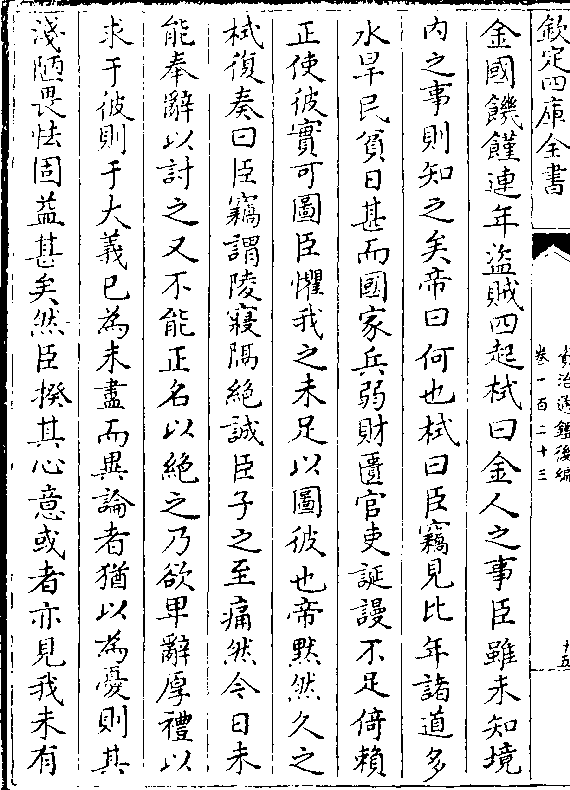 欽定四庫全書
資治通鑑後編
卷一百二十三
十五
金國饑饉連年盜賊四起栻曰金人之事臣雖未知境
内之事則知之矣帝曰何也栻曰臣竊見比年諸道多
水旱民貧日甚而國家兵弱財匱官吏誕謾不足倚賴
正使彼實可圖臣懼我之未足以圖彼也帝黙然久之
栻復奏曰臣竊謂陵寢隔絶誠臣子之至痛然今日未
能奉辭以討之又不能正名以絶之乃欲卑辭厚禮以
求于彼則于大義已為未盡而異論者猶以為憂則其
淺陋畏怯固益甚矣然臣揆其心意或者亦見我未有